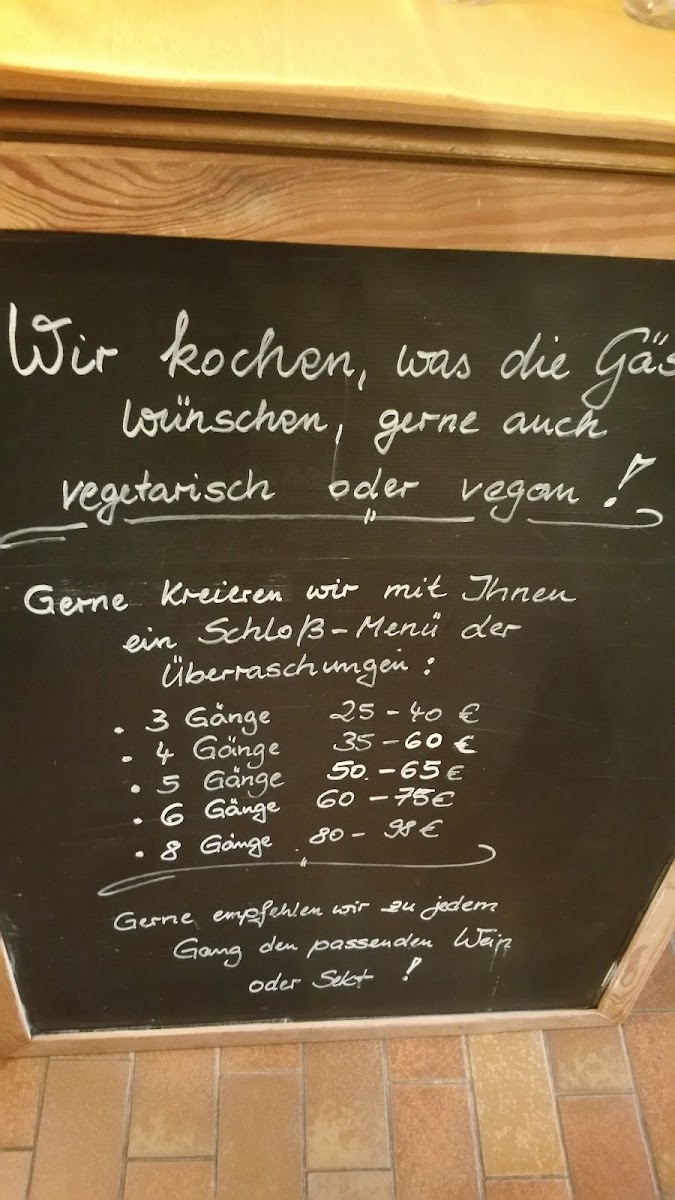 Wir kochen, was die Gäs
wünschen, gerne auch
vegetarisch oder vegan!
Gerne kreieren wir mit Ihnen
ein Schloß-Menü der
Überraschungen:
• 3 Gänge 25 - 40 €
- 4 Gänge 35 - 60 €
• 5 Gänge 50.- 65 €
• 6 Gänge 60 - 75 €
• 8 Gänge 80 - 98 €
Gerne empfehlen wir zu jedem
Gang den passenden Wein
oder Sekt!